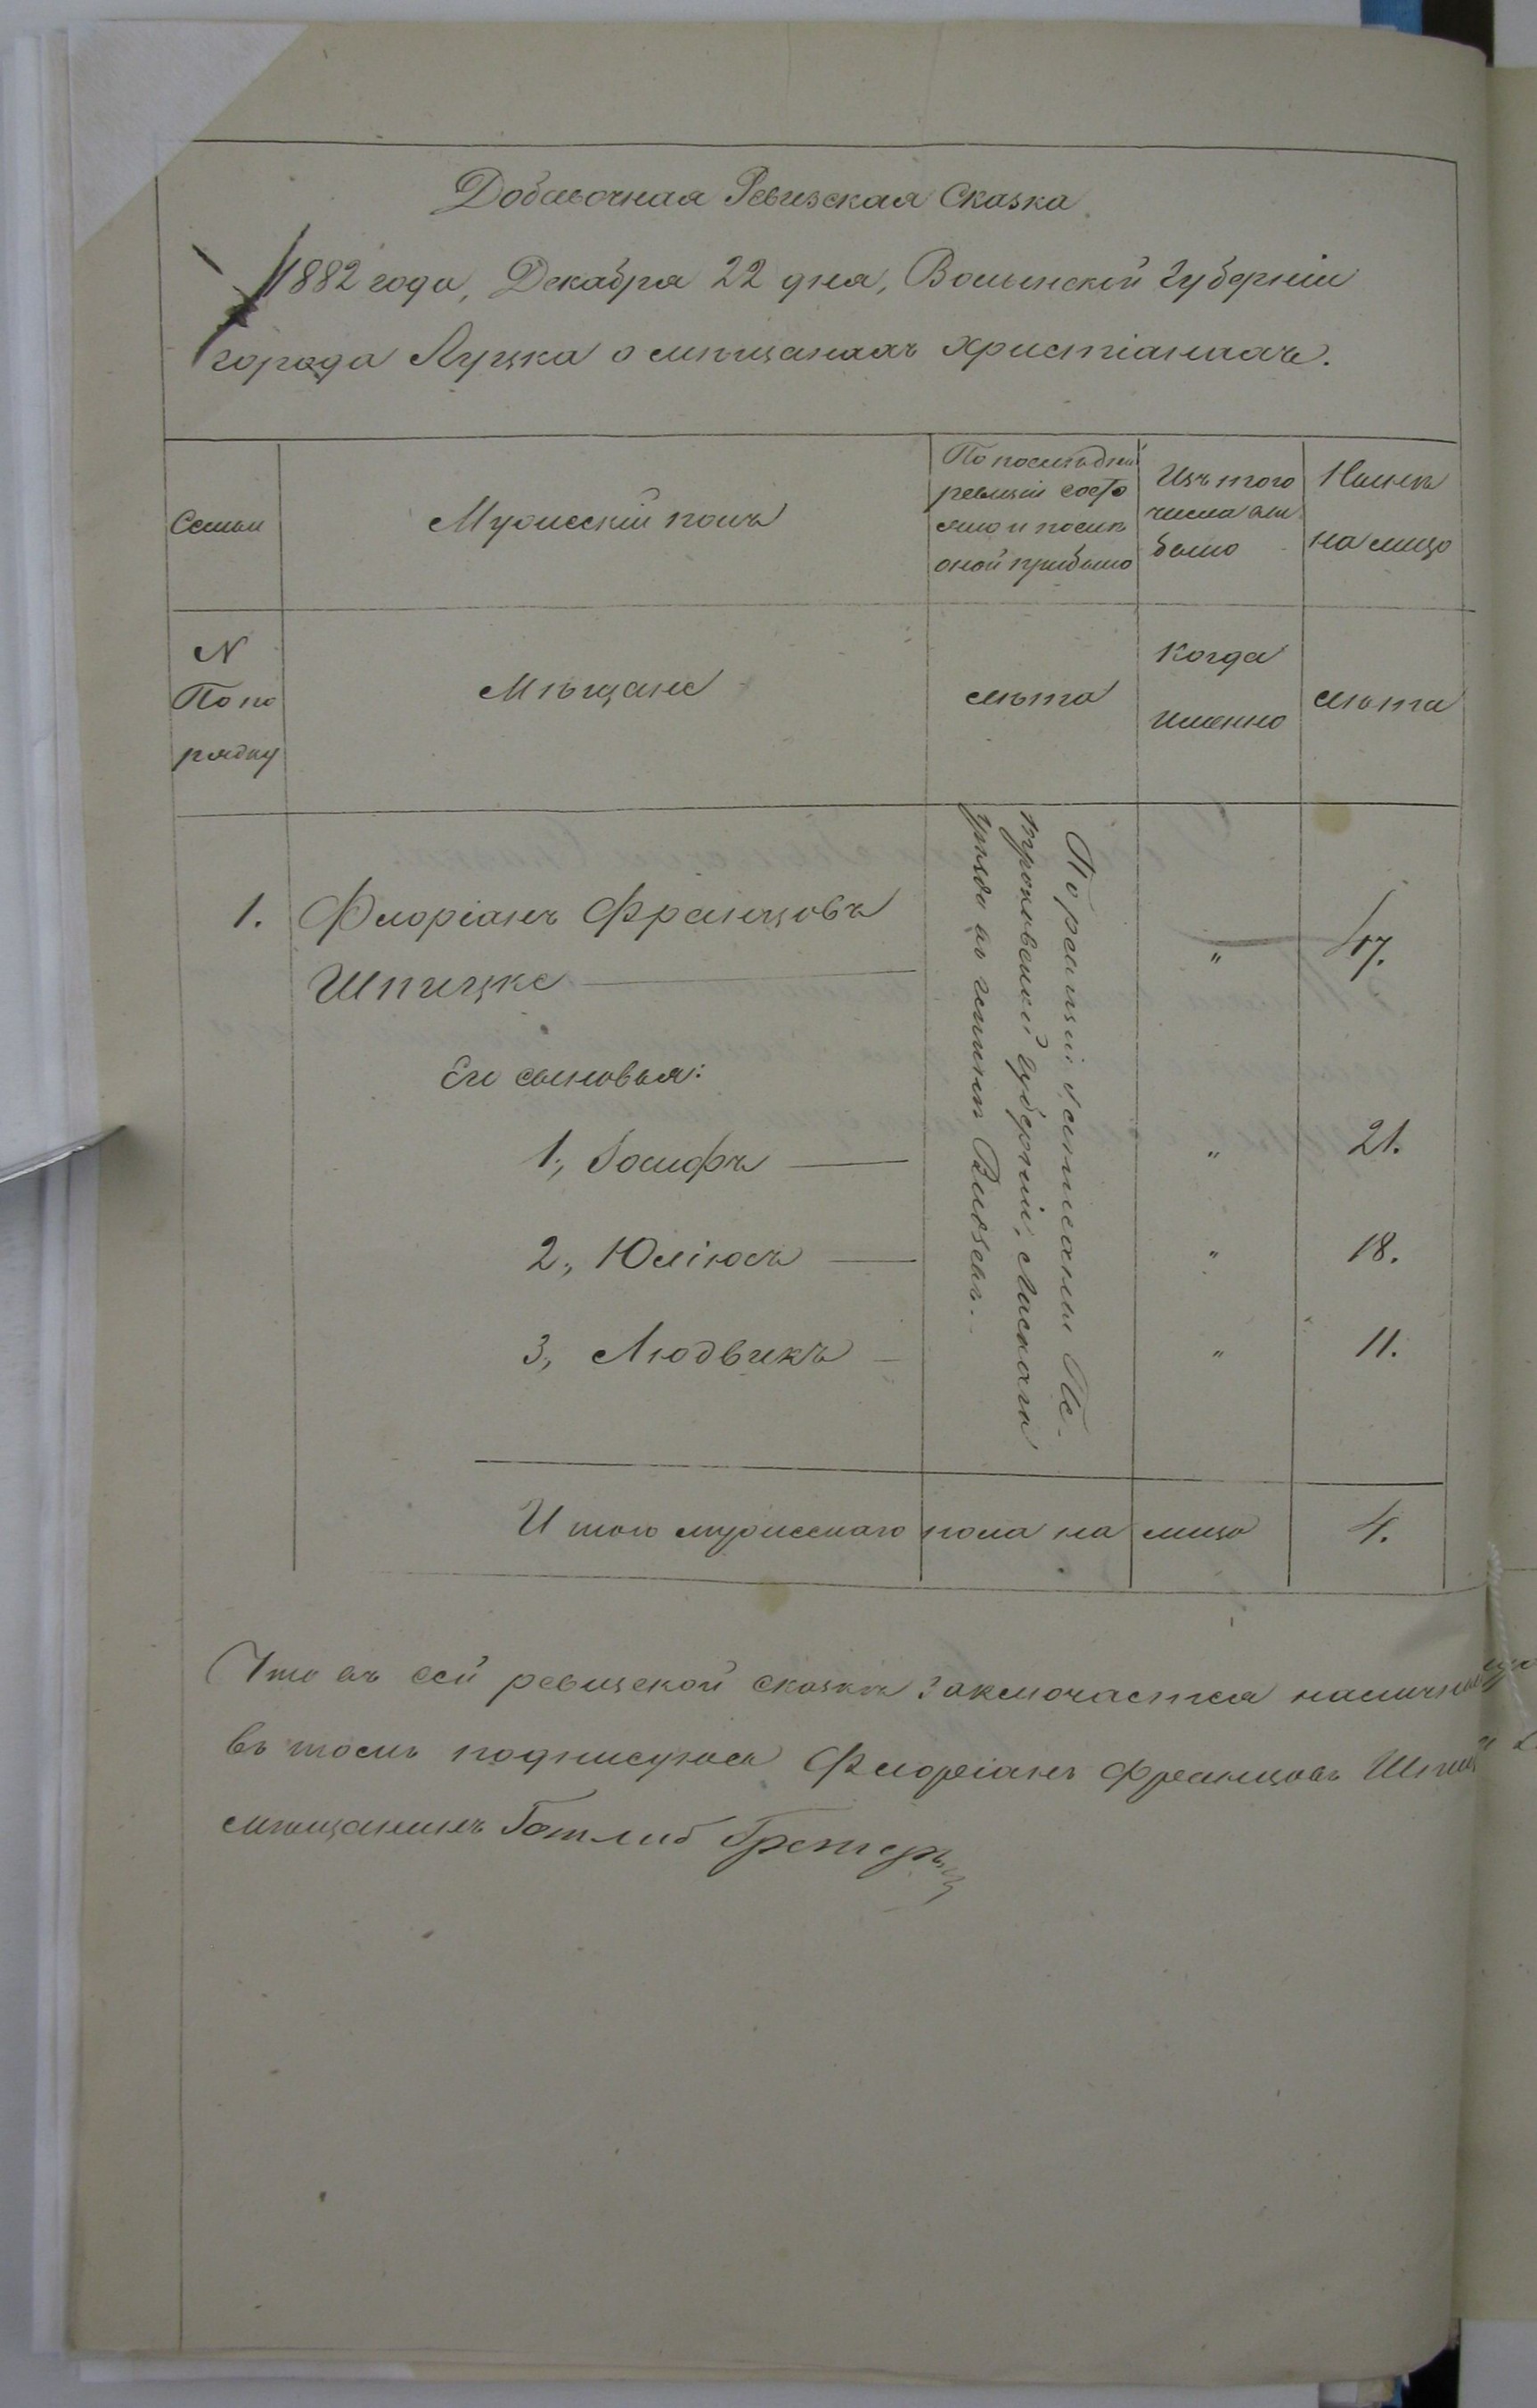 Добавочная Ревизская Сказка
1882 года, Декабря 22 дня, Волынской Губерніи
города Луцка о мѣщанахъ христіанахъ.
Семьи
Мужескій полъ
По послѣдней
ревизіи состо
яло и послѣ
оной прибыло
Изъ того
числа вы
было
Нынѣ
на лицо
N
По по
рядку
Мѣщане
лѣта
Когда
именно
лѣта
1. Флоріанъ Францовъ " 47.
Шпицке
Его сыновья:
1, Іосифъ " 21.
2, Юліюсъ " 18.
3, Людвикъ " 11.
По ревизіи записаны Пе-
троковской Губерніи, Ласкаго
уѣзда въ гминѣ
Итого мужескаго пола на лицо 4.
Что въ сей ревизской сказкѣ заключается
въ томъ подписуюсь Флоріанъ Францовъ
мѣщанинъ Готлиб